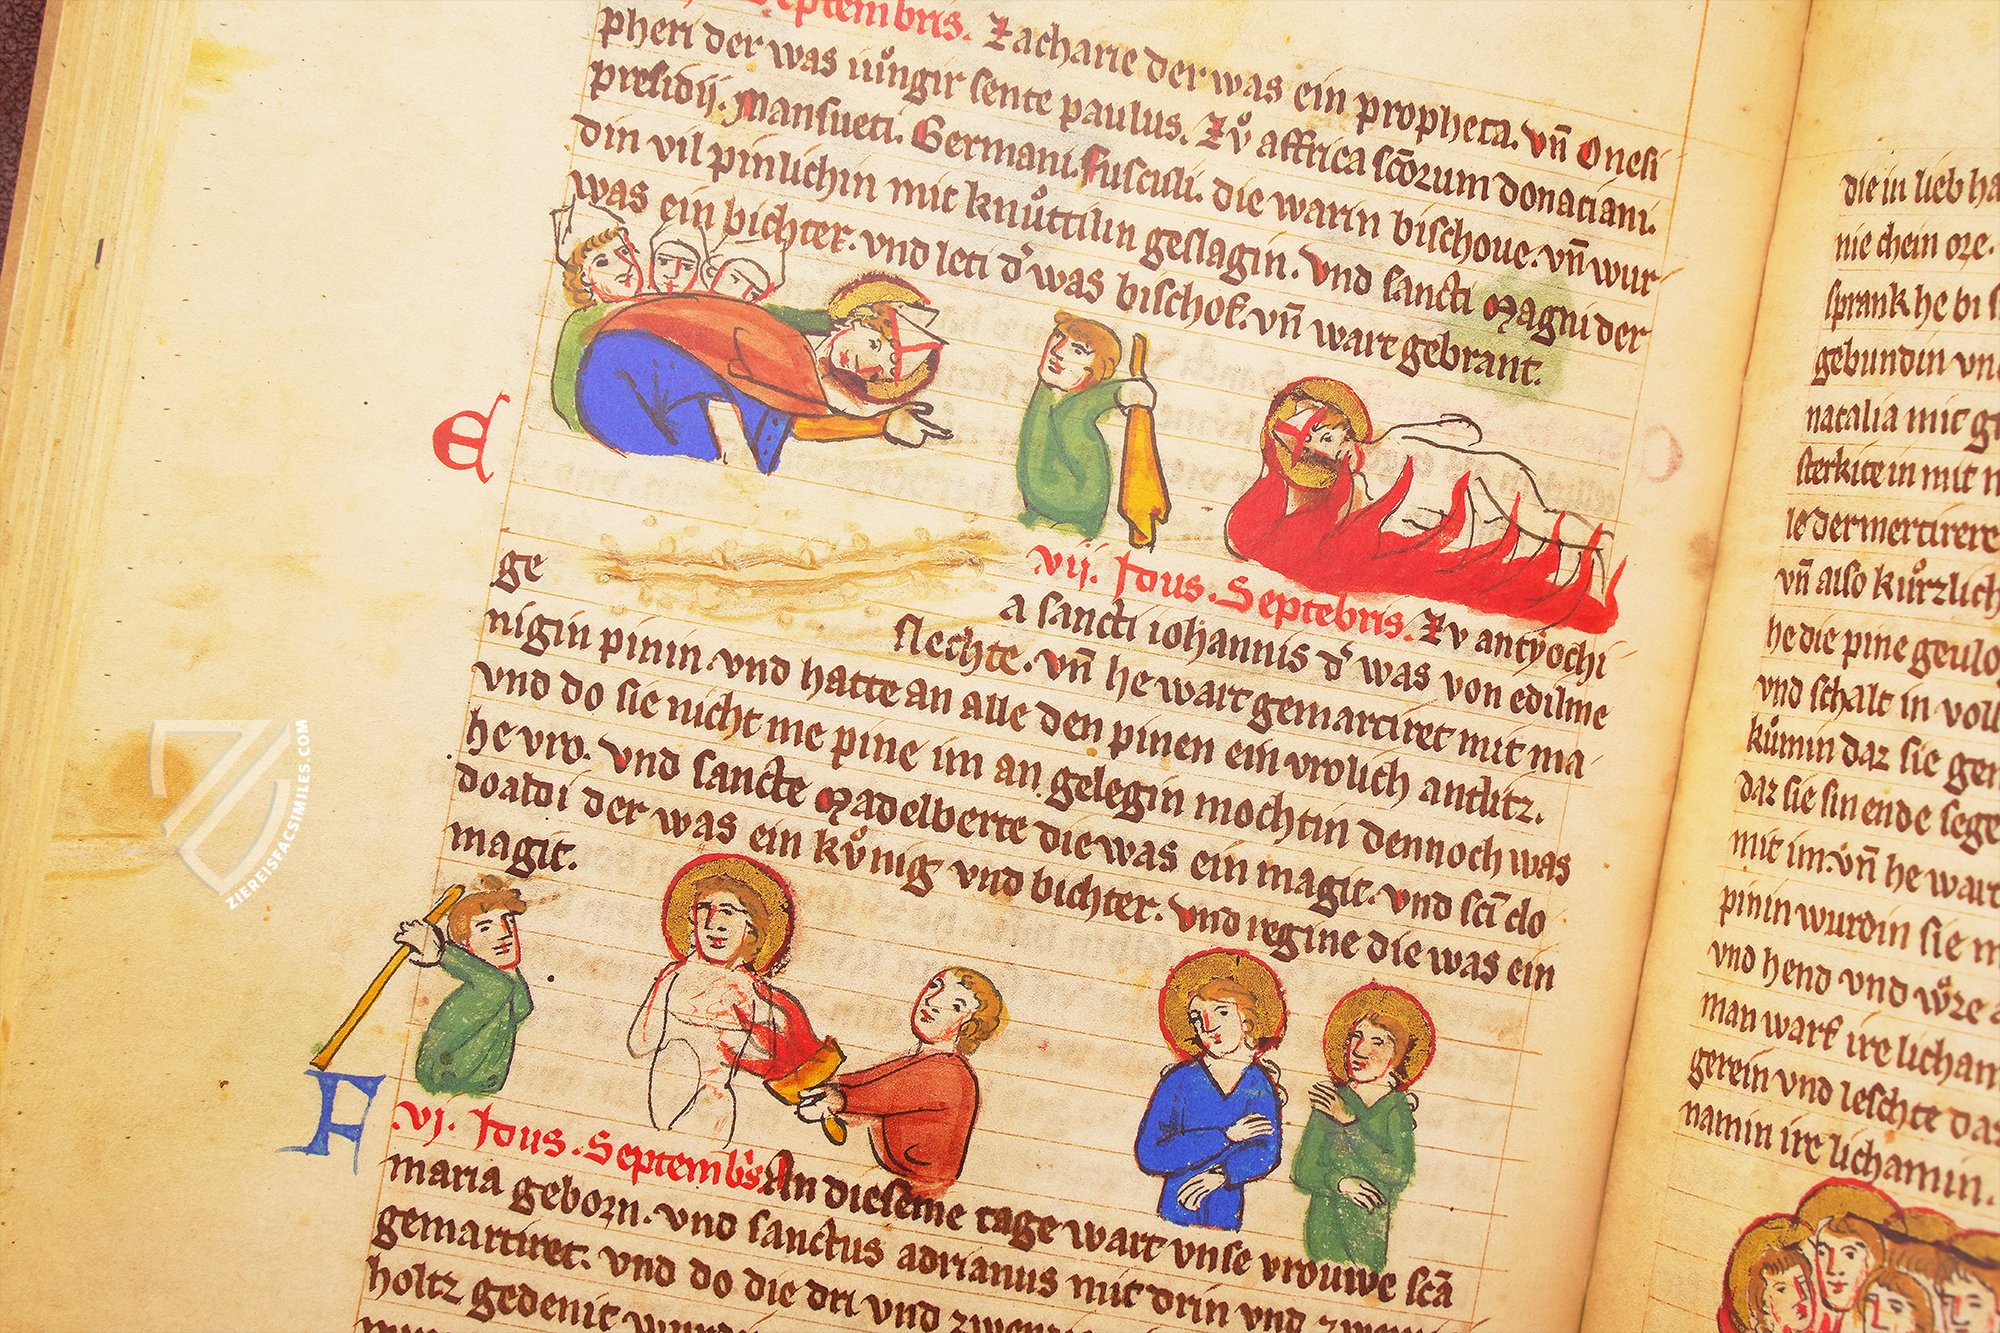 Septembris. Zacharie der was ein propheta. vn̄ Onesi
pheri der was iuͦngir sente paulus. Zvͦ affrica sc̄orum donaciani.
presidij. Mansueti. Germani. fusculi. die warin bischoue. vn̄ wur
din vil pinlichin mit knuͦttilin geslagin. vnd sancti Magni der
was ein bichter. vnd leti d' was bischof. vn̄ wart gebrant.
E
vij. Idus. Septebris. Zv antyochi
ge a sancti iohannis d' was von edilme
slechte. vn̄ he wart gemartiret mit ma
nigin pinin. vnd hatte an alle den pinen ein vrolich antlitz.
vnd do sie nicht me pine im an gelegin mochtin dennoch was
he vro. vnd sancte Madelberte die was ein magit. vnd sc̄i clo
doaldi der was ein kvͦnig vnd bichter. vnd regine die was ein
magit.
F
vj. Idus. Septemb's. An dieseme tage wart vnse vrouwe sc̄a
maria geborn. vnd sanctus adrianus mit drin vnd
gemartiret. vnd do die dri vnd
holtz gedenit
die in lieb ha
nie chein oze.
sprank he bi
gebundin vn
natalia mit
sterkite in mit
le der mertirere
vn̄ also kuͦrzlich
he die pine
vnd schalt in voll
kuͦmin daz sie
daz sie sin ende sege
mit im. vn̄ he wart
pinin wurdin sie
vnd hend vnd
man warf ire licham
gerein vnd leschte daz
namin ire lichamin.
ZIEREISFACSIMILES.COM